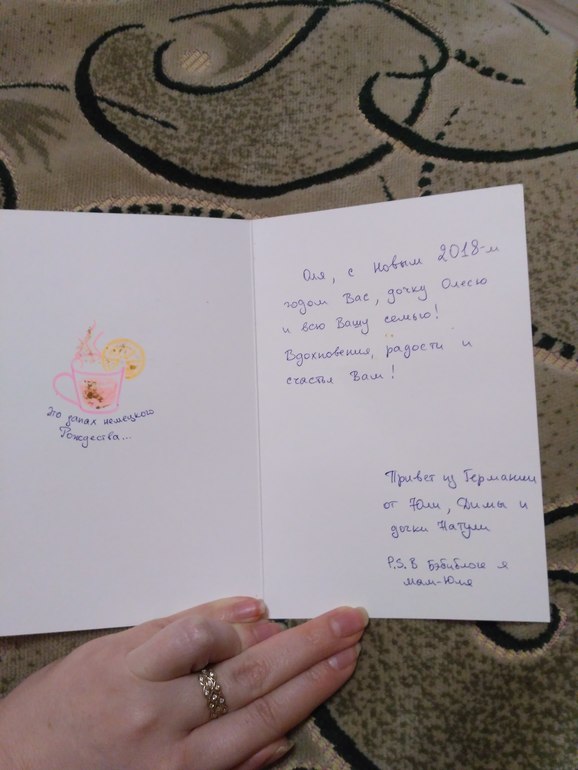 Это запах немецкого
Рождества...
Оля, с Новым 2018-м
годом Вас, дочку Олесю
и всю Вашу семью!
Вдохновения, радости и
счастья Вам!
Привет из Германии
от Юли, Димы и
дочки Натули
P.S. В Бэбиблоге я
мам-Юля